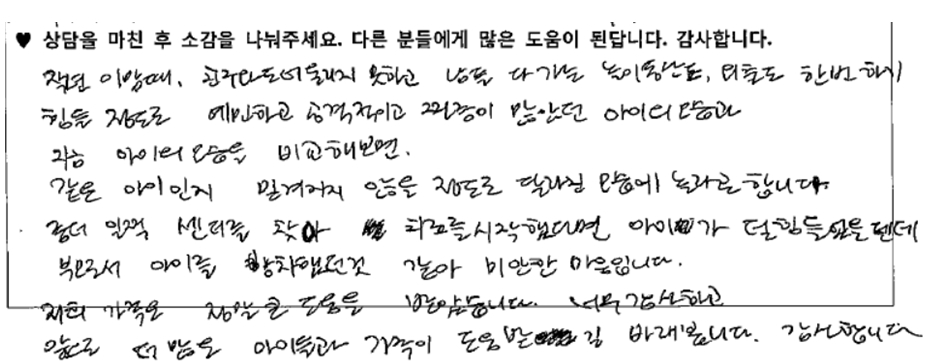 ♥ 상담을 마친 후 소감을 나눠주세요. 다른 분들에게 많은 도움이 된답니다. 감사합니다.
작년 이맘때, 어울리지 못하고 남들 다가는 놀이동산도, 외출도 한번 하기
힘들 정도로 예민하고 공격적이고 짜증이 많았던 아이의 모습과
지금 아이의 모습을 비교해보면.
같은 아이인지 믿겨지지 않을 정도로 달라진 모습에 놀라곤 합니다.
좀더 일찍 센터를 찾아 치료를 시작했다면 아이가 덜 힘들었을텐데
부모로서 아이를 것 같아 미안한 마음입니다.
저희 가족은 정말 큰 도움을 받았습니다. 너무 감사하고
앞으로 더 많은 아이들과 가족이 도움받길 바래봅니다. 감사합니다